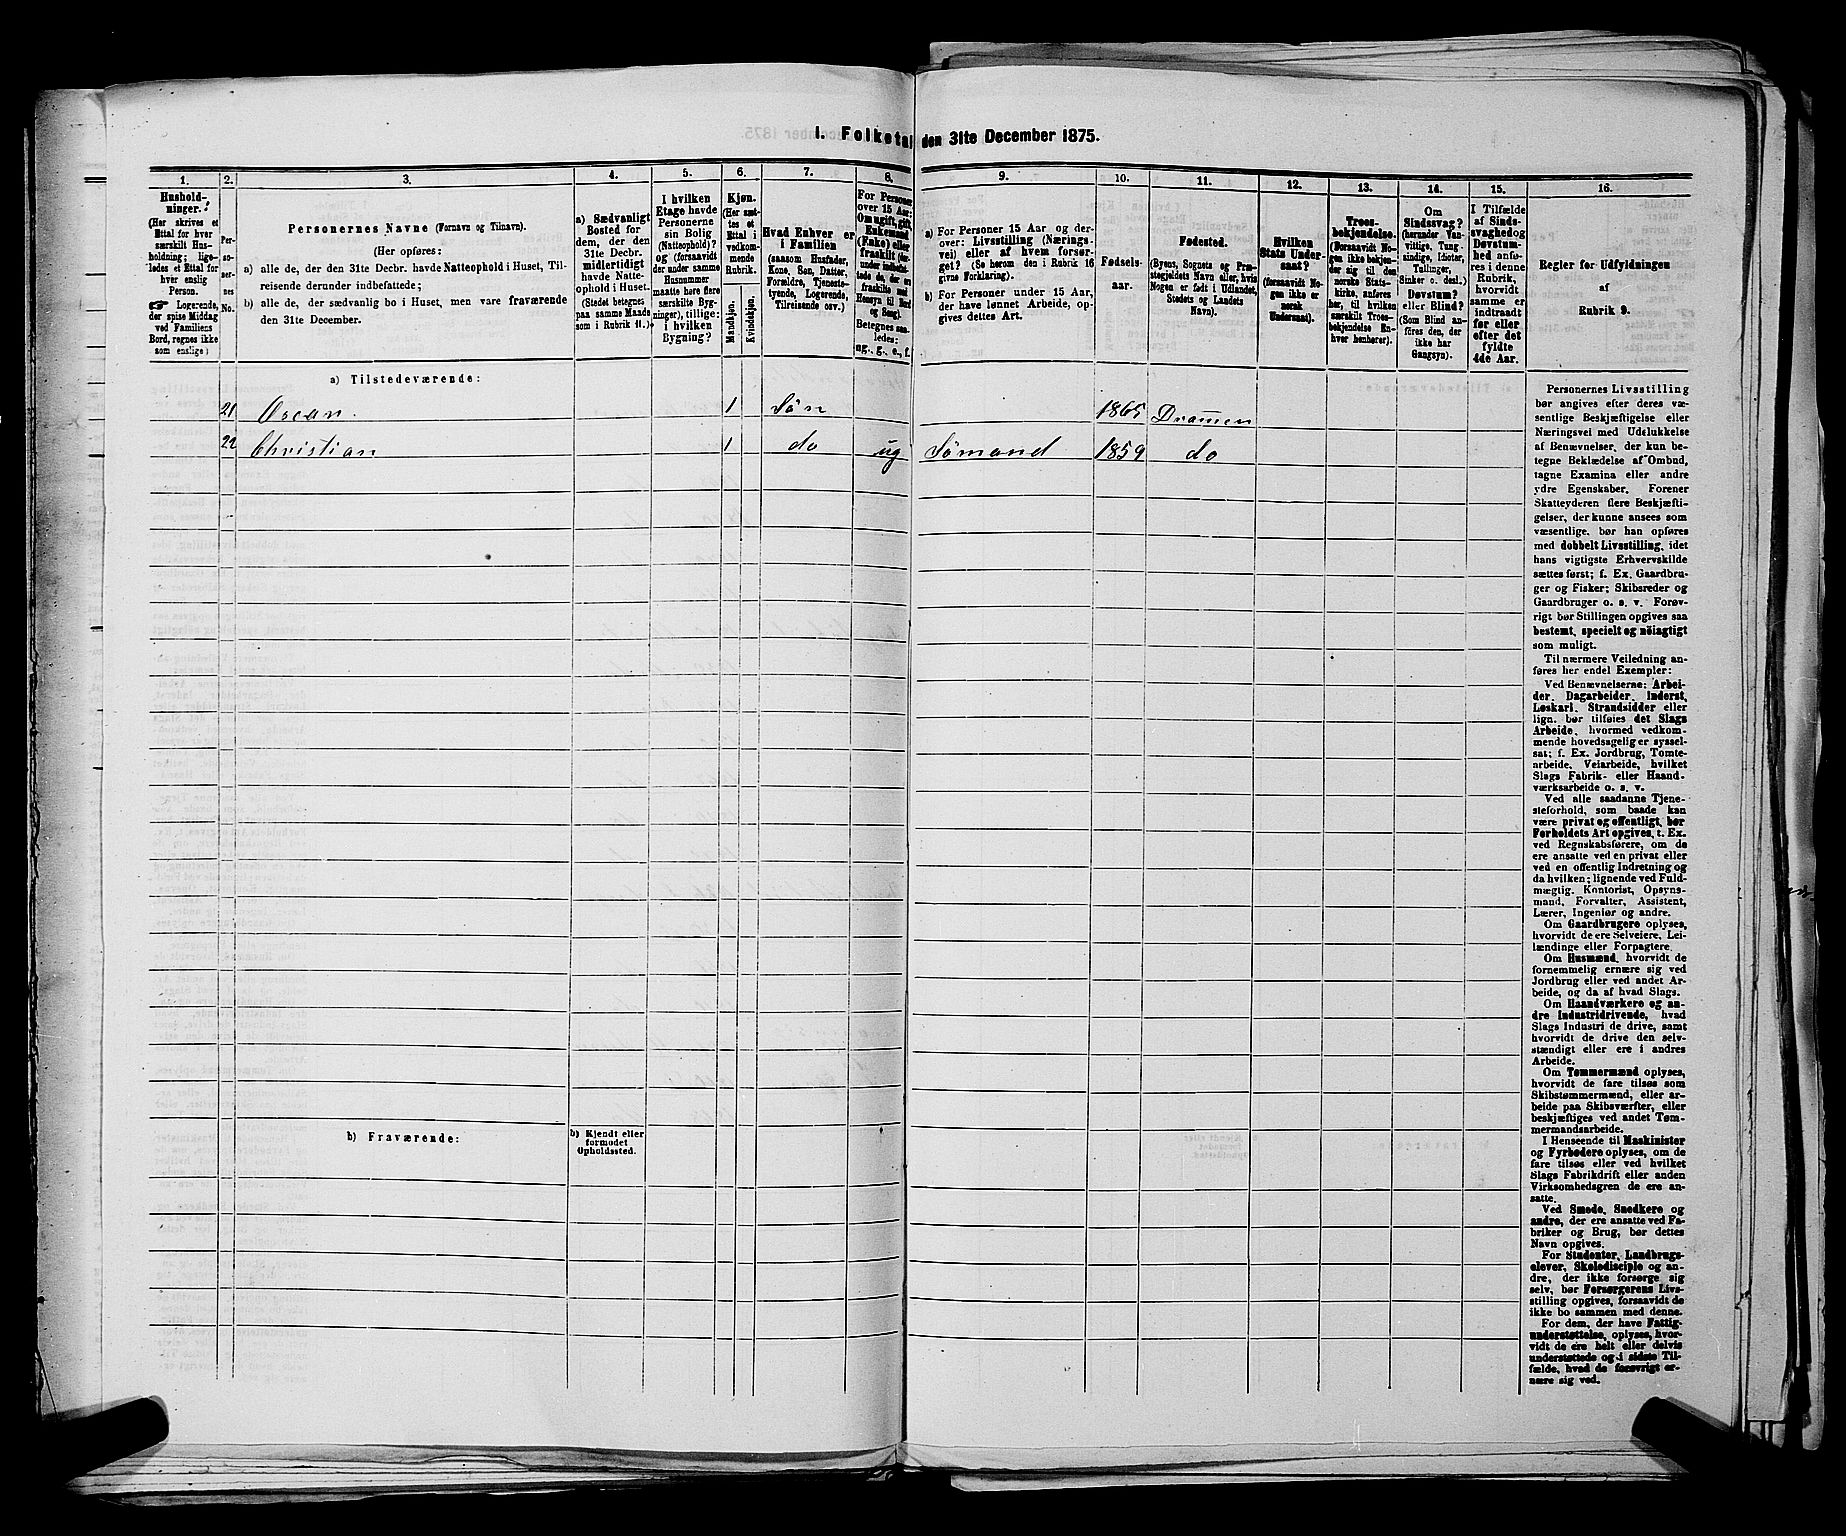 I. Folketal den 31te December 1875.
1. 2. 3. 4. 5. 6. 7. 8. 9. 10. 11. 12. 13. 14. 15. 16.
Hushold-
ninger.
(Her skrives et
Ettal for hver
særskilt Hus-
holdning; lige-
ledes et Ettal for
hver enslig
Person.
☞ Logerende,
der spise Middag
ved Familiens
Bord, regnes ikke
som enslige)
Per-
so-
ner-
nes
No.
Personernes Navne (Fornavn og Tilnavn).
(Her opføres:
a) alle de, der den 31te Decbr. havde Natteophold i Huset, Til-
reisende derunder indbefattede;
b) alle de, der sædvanlig bo i Huset, men vare fraværende
den 31te December.
a) Sædvanligt
Bosted for
dem, der den
31te Decbr.
midlertidigt
havde Natte-
ophold i Huset.
(Stedet betegnes
paa samme Maade
som i Rubrik 11.)
I hvilken
Etage havde
Personerne
sin Bolig
(Natteophold)?
og (forsaavidt
der under samme
Husnummer
maatte høre flere
særskilte Byg-
ninger), tillige:
i hvilken
Bygning?
Kjøn.
(Her sæt-
tes et
Ettal i
vedkom-
mende
Rubrik.
Mandkjøn.
Kvindekjøn.
Hvad Enhver er
i Familien
(saasom Husfader,
Kone, Søn, Datter,
Forældre, Tjeneste-
tyende, Logerende,
Tilreisende osv.)
For Personer
over 15 Aar:
Om ugift, gift,
Enkemand
(Enke) eller
fraskilt (her-
under indbefat-
tede de, der ere
fraskilte med
Hensyn til Bord
og Seng).
Betegnes saa-
ledes:
ug., g., e., f.
a) For Personer 15 Aar og der-
over: Livsstilling (Nærings-
vei) eller af hvem forsør-
get? (Se herom den i Rubrik 16
givne Forklaring).
b) For Personer under 15 Aar,
der have lønnet Arbeide, op-
gives dettes Art.
Fødsels-
aar.
Fødested.
(Byens, Sognets og Præ-
stegjeldets Navn eller, hvis
Nogen er født i Udlandet,
Stedets og Landets
Navn).
Hvilken
Stats Under-
saat?
(forsaavidt No-
gen ikke er
norsk
Undersaat).
Troes-
bekjendelse.
(Forsaavidt No-
gen ikke bekjen-
der sig til den
norske Stats-
kirke, anføres
her, til hvilken
særskilt Troes-
bekjendelse En-
hver henhører).
Om
Sindssvag?
(herunder Van-
vittige, Tung-
sindige, Idioter,
Tullinger,
Sinker o. desl.)
Døvstum?
eller Blind?
(Som Blind an-
føres den, der
ikke har
Gangsyn).
I Tilfælde
af Sinds-
svaghed og
Døvstum-
hed anfø-
res i denne
Rubrik,
hvorvidt
samme er
indtraadt
før eller
efter det
fyldte
4de Aar.
Regler for Udfyldningen
af
Rubrik 9.
a) Tilstedeværende:
21 Oscar. 1 Søn 1865 Drammen
22 Christian 1 do ug Sømand 1859 do
b) Fraværende:
b) Kjendt eller
formodet
Opholdssted.
Personernes Livsstilling
bør angives efter deres væ-
sentlige Beskjæftigelse eller
Næringsvei med Udelukkelse
af Benævnelser, der kun be-
tegne Beklædelse af Ombud,
tagne Examina eller andre
ydre Egenskaber. Forener
Skatteyderen flere Beskjæfti-
gelser, der kunne ansees som
væsentlige, bør han opføres
med dobbelt Livsstilling, idet
hans vigtigste Erhvervskilde
sættes først; f. Ex. Gaardbru-
ger og Fisker; Skibsreder og
Gaardbruger o. s. v. Forøv-
rigt bør Stillingen opgives saa
bestemt, specielt og nöiagtigt
som muligt.
Til nærmere Veiledning an-
føres her endel Exempler:
Ved Benævnelserne: Arbei-
der, Dagarbeider, Inderst,
Løskarl, Strandsidder eller
lign. bør tilføies det Slags
Arbeide, hvormed vedkom-
mende hovedsagelig er syssel-
sat; f. Ex. Jordbrug, Tomte-
arbeide, Veiarbeide, hvilket
Slags Fabrik- eller Haand-
værksarbeide o. s. v.
Ved alle saadanne Tjene-
steforhold, som baade kan
være privat og offentligt, bør
Forholdets Art opgives, t. Ex.
ved Regnskabsførere, om de
ere ansatte ved en privat eller
ved en offentlig Indretning og
da hvilken; lignende ved Fuld-
mægtig, Kontorist, Opsyns-
mand, Forvalter, Assistent,
Lærer, Ingeniør og andre.
Om Gaardbrugere oplyses,
hvorvidt de ere Selveiere, Lei-
lændinge eller Forpagtere.
Om Husmænd, hvorvidt de
fornemmelig ernære sig ved
Jordbrug eller ved andet Ar-
beide, og da af hvad Slags.
Om Haandværkere og an-
dre Industridrivende, hvad
Slags Industri de drive, samt
hvorvidt de drive den selv-
stændigt eller ere i andres
Arbeide.
Om Tømmermænd oplyses,
hvorvidt de fare tilsøs som
Skibstømmermænd, eller ar-
beide paa Skibsværfter, eller
beskjæftiges ved andet Tøm-
mermandsarbeide.
I Henseende til Maskinister
og Fyrbødere oplyses, om de
fare tilsøs eller ved hvilket
Slags Fabrikdrift eller anden
Virksomhedsgren de ere an-
satte.
Ved Smede, Snedkere og
andre, der ere ansatte ved Fa-
briker og Brug, bør dettes
Navn opgives.
For Studenter, Landbrugs-
elever, Skoledisciple og an-
dre, der ikke forsørge sig
selv, bør Forsørgerens Livs-
stilling opgives, forsaavidt de
ikke bo sammen med denne.
For dem, der have Fattig-
understøttelse, oplyses, hvor-
vidt de ere helt eller delvis
understøttede og i sidste Til-
fælde, hvad de forøvrigt er-
nære sig ved.